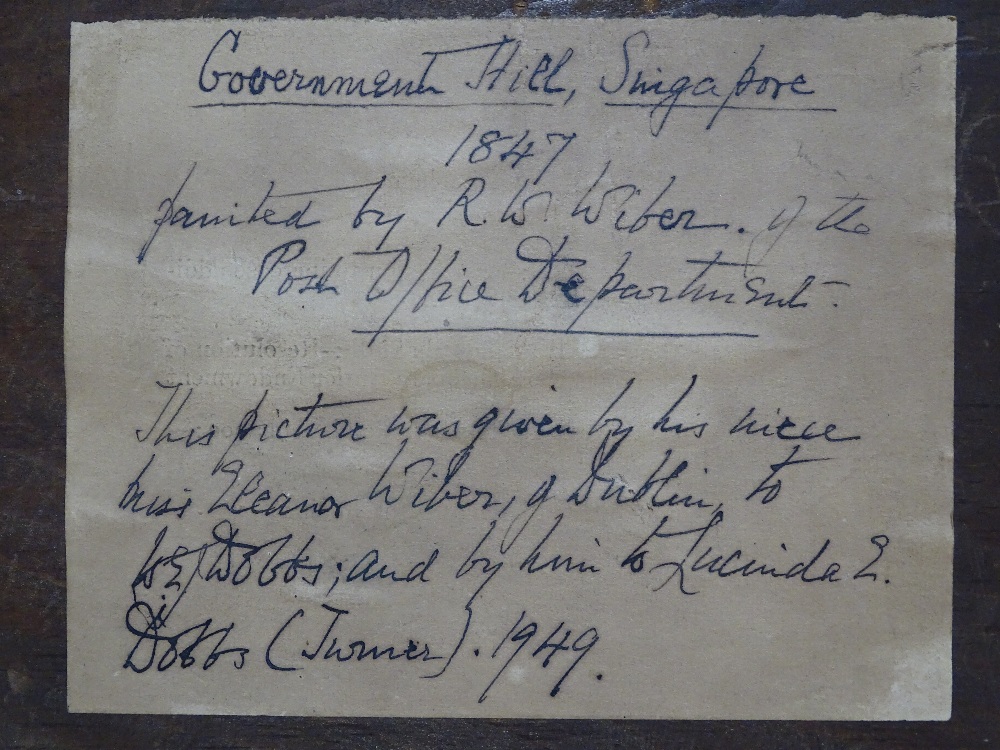 Government Hill, Singapore
1847
painted by R. W. Wiber. of the
Post Office Department.
This picture was given by his niece
Miss Eleanor Wiber, of Dublin, to
W.E.J. Dobbs; and by him to Lucinda E.
Dobbs (Turner). 1949.